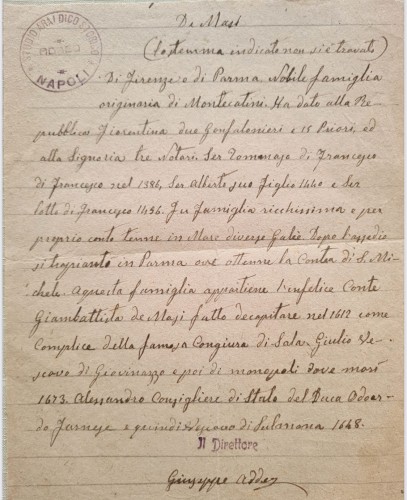 De Masi
(Lo stemma indicato non si è trovato)
Di Firenze o di Parma. Nobile famiglia
originaria di Montecatini. Ha dato alla Re-
pubblica Fiorentina due Gonfalonieri e 18 Priori, ed
alla Signoria tre Notari. Ser Tommaso di Francesco
di Francesco nel 1386, Ser Alberto suo figlio 1440 e Ser
Lotto di Francesco 1456. Fu famiglia ricchissima e per
proprio conto tenne in Mare diverse Galee. Dopo l'assedio
si trapiantò in Parma ove ottenne la Contea di S. Mi-
chele. A questa famiglia appartiene l'infelice Conte
Giambattista de Masi fatto decapitare nel 1612 come
Complice della famosa Congiura di Sala. Giulio Ve-
scovo di Giovinazzo e poi di monopoli dove morì
1673. Alessandro Consigliere di Stato del Duca Odoar-
do Farnese e quindi Vescovo di Sulmona 1648.
Il Direttore
Giuseppe
STUDIO ARALDICO
NAPOLI